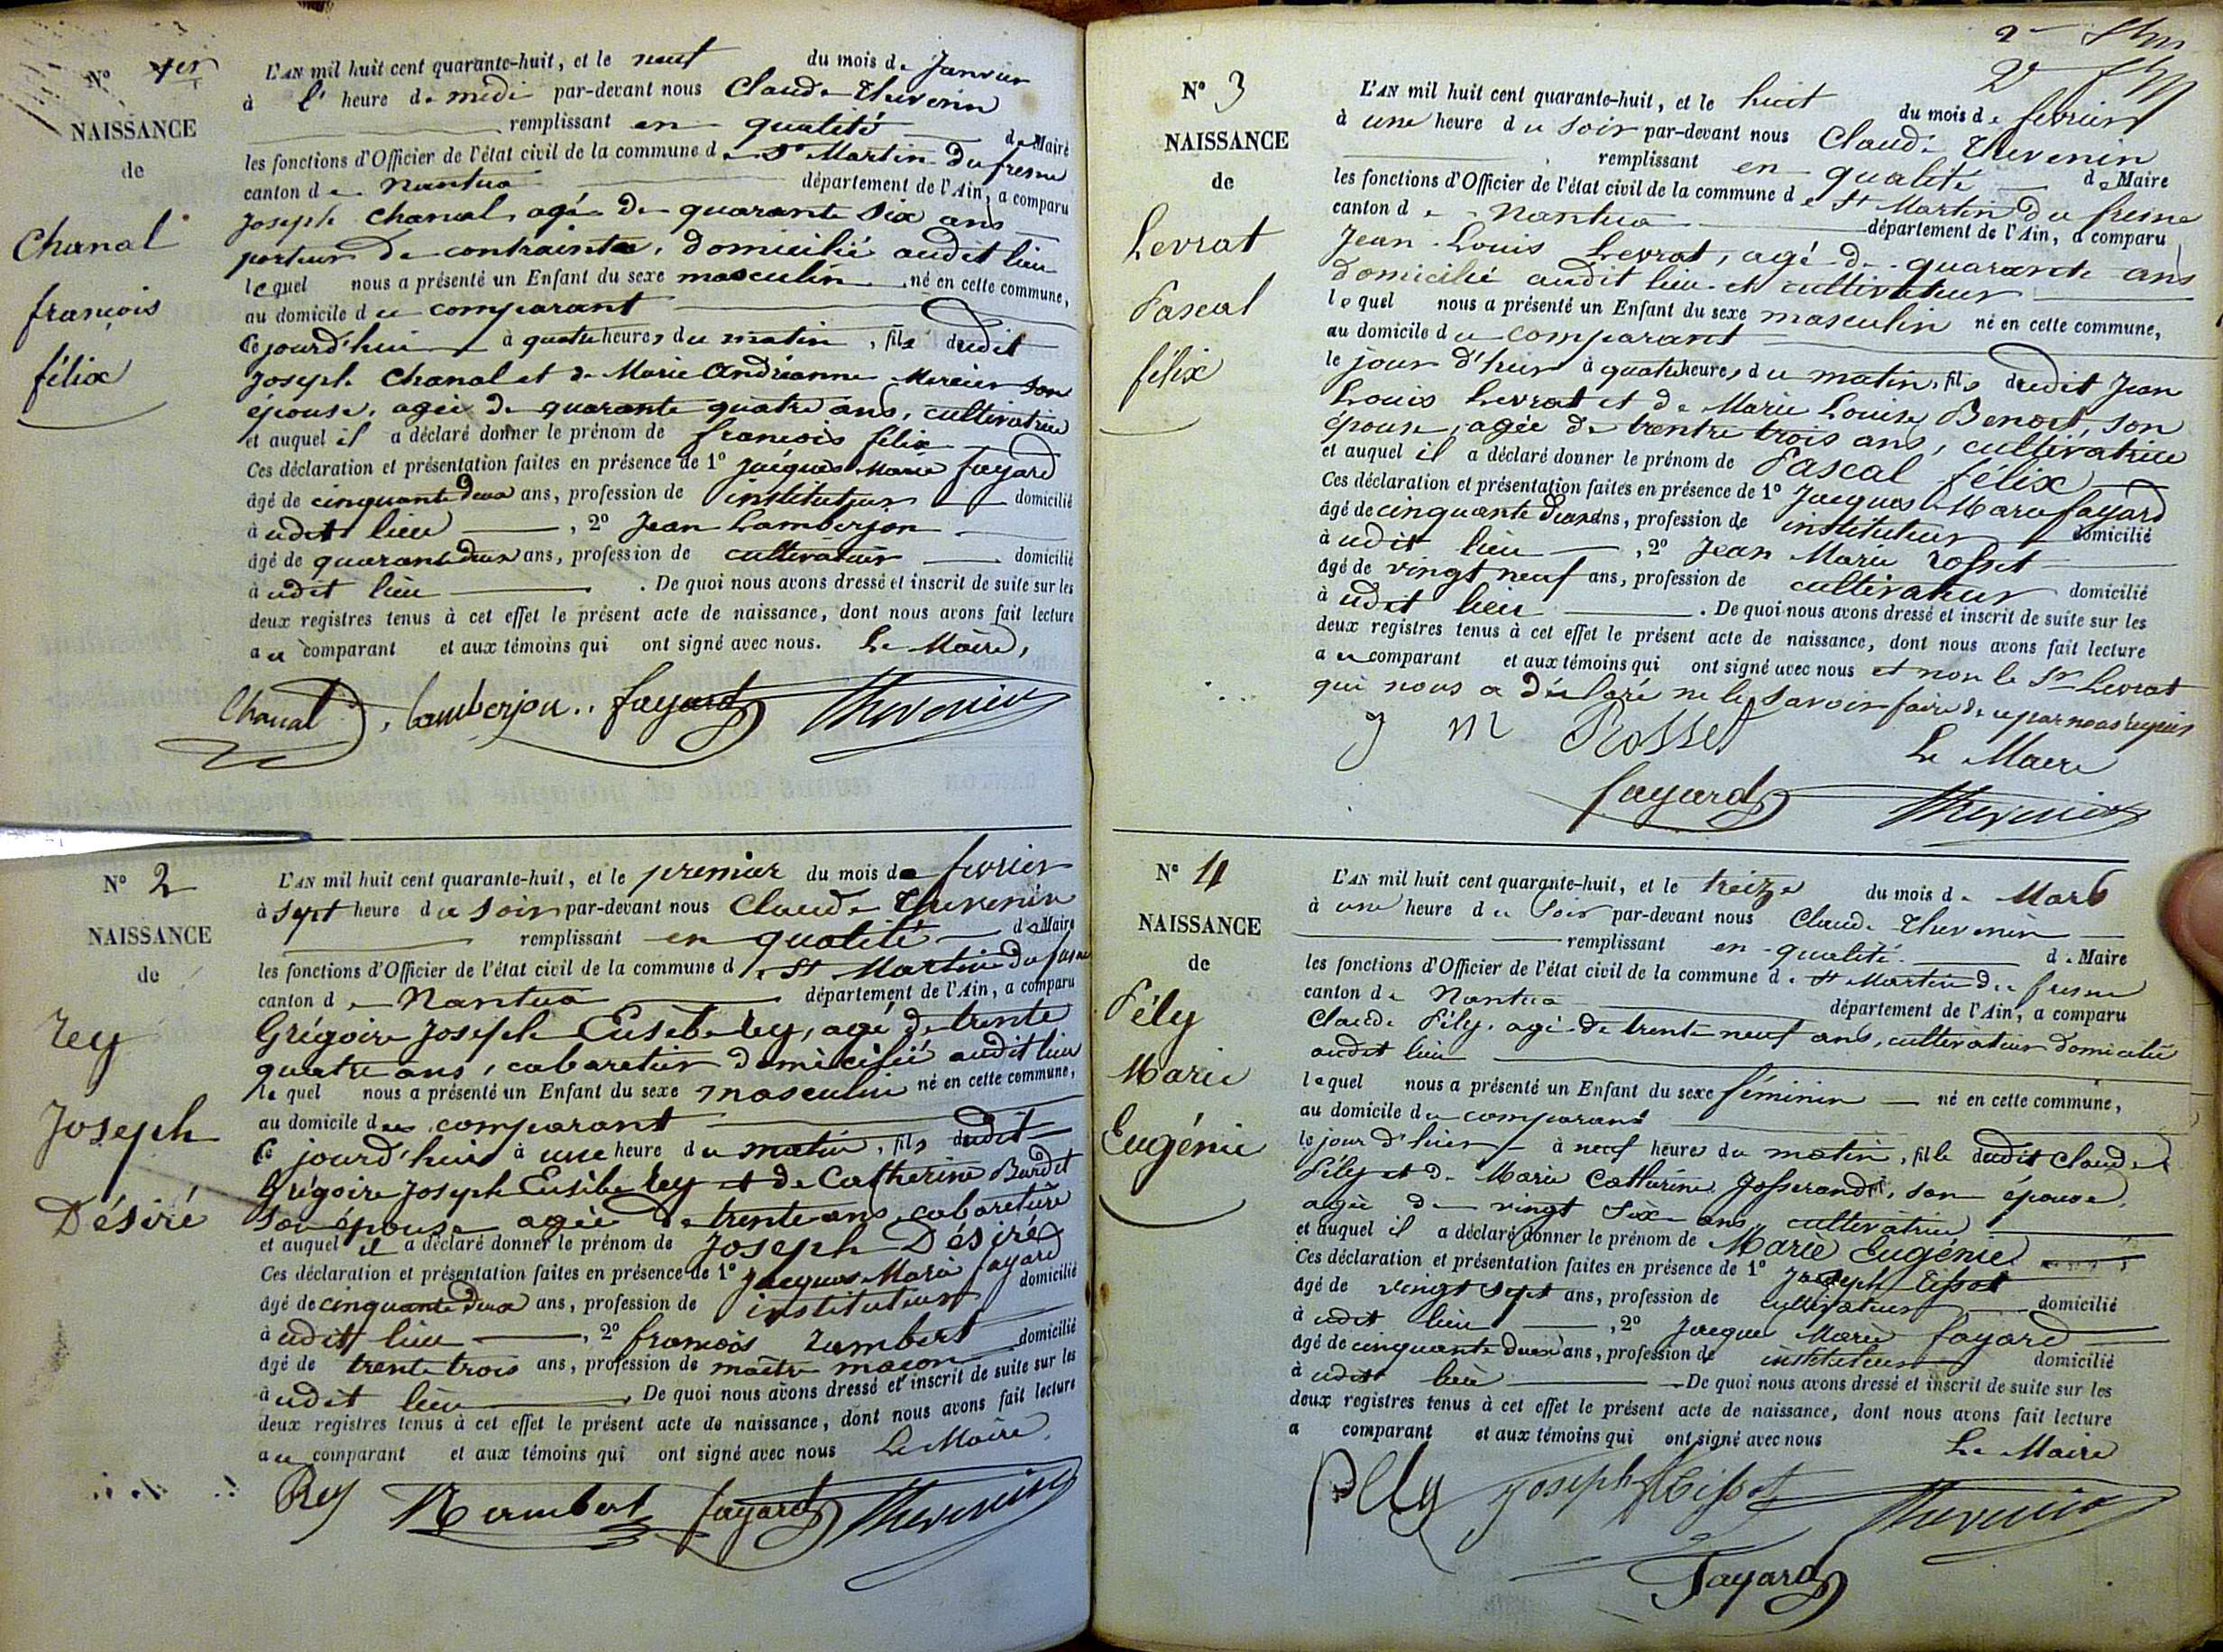 N° 1er
NAISSANCE
de
Chanal
françois
félix
L'AN mil huit cent quarante-huit, et le neuf du mois de Janvier
à l' heure de midi par-devant nous Claude Thevenin
remplissant en qualité de Maire
les fonctions d'Officier de l'état civil de la commune de St Martin du fresne
canton de Nantua département de l'Ain, a comparu
Joseph Chanal, agé de quarante six ans
porteur de contrainte, domicilié audit lieu
lequel nous a présenté un Enfant du sexe masculin né en cette commune,
au domicile du comparant
Ce jourd'hui à quatre heures du matin, fils dudit
Joseph Chanal et de Marie Andréanne Mercier son
épouse, agée de quarante quatre ans, cultivatrice
et auquel il a déclaré donner le prénom de françois félix
Ces déclaration et présentation faites en présence de 1° Jacques Marie fayard
âgé de cinquante deux ans, profession de instituteur domicilié
à udit lieu, 2° Jean Lamberjon
âgé de quarante deux ans, profession de cultivateur domicilié
à udit lieu. De quoi nous avons dressé et inscrit de suite sur les
deux registres tenus à cet effet le présent acte de naissance, dont nous avons fait lecture
au comparant et aux témoins qui ont signé avec nous. Le Maire,
Chanal, Lamberjon.. fayard Thevenin
N° 2
NAISSANCE
de
rey
Joseph
Désiré
L'AN mil huit cent quarante-huit, et le premier du mois de fevrier
à sept heure du soir par-devant nous Claude Thevenin
remplissant en qualité de Maire
les fonctions d'Officier de l'état civil de la commune de St Martin du fresne
canton de Nantua département de l'Ain, a comparu
Grégoire Joseph Eusèbe rey, agé de trente
quatre ans, cabaretier domicilié audit lieu
lequel nous a présenté un Enfant du sexe masculin né en cette commune,
au domicile du comparant
Ce jourd'hui à une heure du matin, fils dudit
Grégoire Joseph Eusèbe rey et de Catherine Burdet
son épouse agée de trente ans cabaretière
et auquel il a déclaré donner le prénom de Joseph Désiré
Ces déclaration et présentation faites en présence de 1° Jacques Marie fayard
âgé de cinquante deux ans, profession de instituteur domicilié
à udit lieu, 2° françois rambert
âgé de trente trois ans, profession de maître maçon domicilié
à udit lieu. De quoi nous avons dressé et inscrit de suite sur les
deux registres tenus à cet effet le présent acte de naissance, dont nous avons fait lecture
au comparant et aux témoins qui ont signé avec nous Le Maire.
Rey Rambert fayard Thevenin
N° 3
NAISSANCE
de
Levrat
Pascal
félix
L'AN mil huit cent quarante-huit, et le huit du mois de fevrier
à une heure du soir par-devant nous Claude Thevenin
remplissant en qualité de Maire
les fonctions d'Officier de l'état civil de la commune de St Martin du fresne
canton de Nantua département de l'Ain, a comparu
Jean Louis Levrat, agé de quarante ans
domicilié audit lieu et cultivateur
lequel nous a présenté un Enfant du sexe masculin né en cette commune,
au domicile du comparant
le jour d'hier à quatre heures du matin, fils dudit Jean
Louis Levrat et de Marie Louise Benoit, son
épouse, agée de trentre trois ans, cultivatrice
et auquel il a déclaré donner le prénom de Pascal félix
Ces déclaration et présentation faites en présence de 1° Jacques Marie fayard
âgé de cinquante deux ans, profession de instituteur domicilié
à udit lieu, 2° Jean Marie rosset
âgé de vingt neuf ans, profession de cultivateur domicilié
à udit lieu. De quoi nous avons dressé et inscrit de suite sur les
deux registres tenus à cet effet le présent acte de naissance, dont nous avons fait lecture
au comparant et aux témoins qui ont signé avec nous et non le Sr Levrat
qui nous a déclaré ne le savoir faire de ce par nous requis
J M Rosset Le Maire
fayard Thevenin
N° 4
NAISSANCE
de
Pély
Marie
Eugénie
L'AN mil huit cent quarante-huit, et le treize du mois de Mars
à une heure du soir par-devant nous Claude Thevenin
remplissant en qualité de Maire
les fonctions d'Officier de l'état civil de la commune de St Martin du fresne
canton de Nantua département de l'Ain, a comparu
Claude Pély, agé de trente neuf ans, cultivateur domicilié
audit lieu
lequel nous a présenté un Enfant du sexe féminin né en cette commune,
au domicile du comparant
le jour d'hier à neuf heure du matin, fille dudit Claude
Pély et de Marie Catherine Josserand, son épouse,
agée de vingt six ans, cultivatrice
et auquel il a déclaré donner le prénom de Marie Eugénie
Ces déclaration et présentation faites en présence de 1° Joseph tissot
âgé de vingt sept ans, profession de cultivateur domicilié
à udit lieu, 2° Jacque Marie fayard
âgé de cinquante deux ans, profession de instituteur domicilié
à udit lieu. De quoi nous avons dressé et inscrit de suite sur les
deux registres tenus à cet effet le présent acte de naissance, dont nous avons fait lecture
a comparant et aux témoins qui ont signé avec nous Le Maire
pély Joseph tissot Thevenin
Fayard